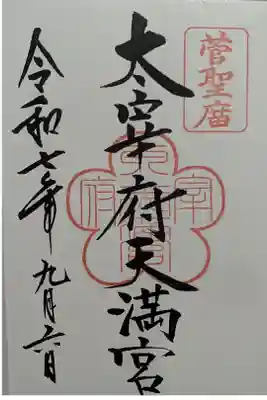 菅聖廟
太宰府天満宮
令和七年九月六日